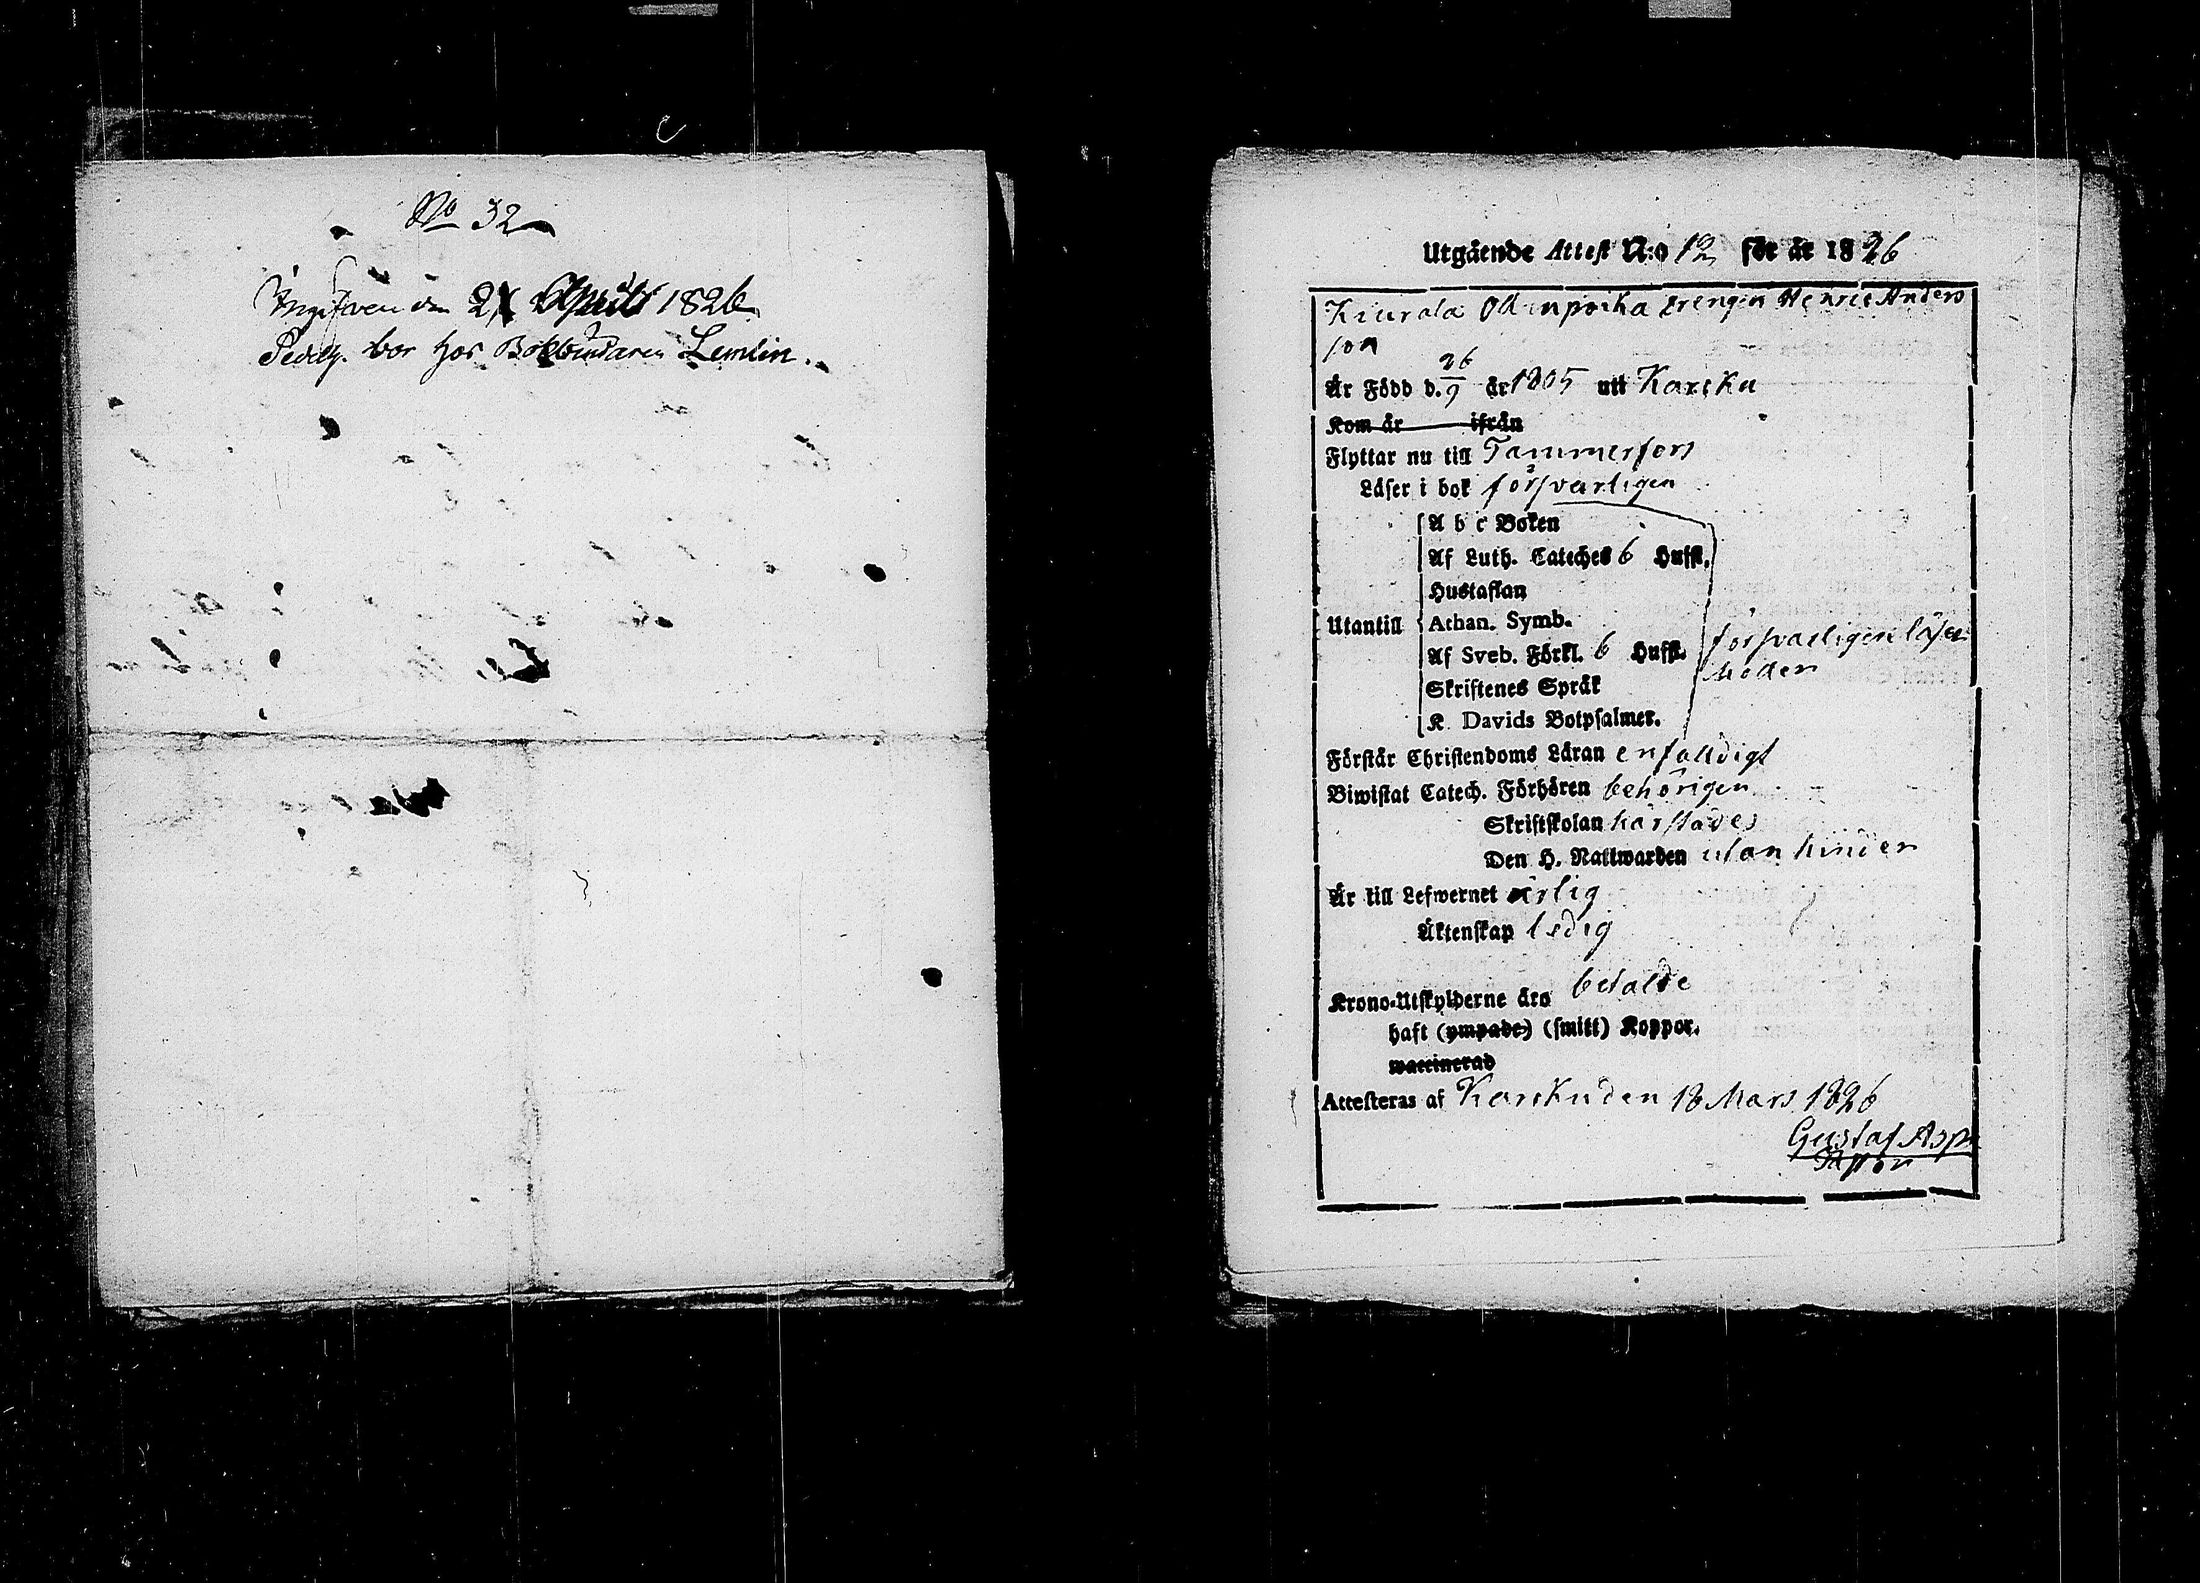 No 32
Ingifven den 21 April 1826
Pedag. bor hos Bokbindaren Lemlin.
Utgående Attest N:o 12 för år 1826
Kiurala Ollinpoika Drengen Henric Anders
son
Är Född d. 26/9 år 1805 uti Karcku
Kom år ifrån
Flyttar nu till Tammerfors
Läser i bok försvarligen
A b c Boken
Af Luth. Cateches 6 Hufst.
Hustaflan
Utantill Athan. Symb.
Af Sveb. Förkl. 6 Hufst. försvarligen läser
Skriftenes Språk
K. Davids Botpsalmer.
Förstår Christendoms Läran enfalldigt
Biwistat Catech. Förhören behörigen
Skriftskolan härstädes
Den H. Nattwarden utan hinder
Är till Lefwernet ärlig
Äktenskap ledig
Krono-Utskylderne äro betalde
haft (ympade) (smitt) Koppor.
waccinerad
Attesteras af Karcku den 18 Mars 1826
Gustaf Asp
Pastor